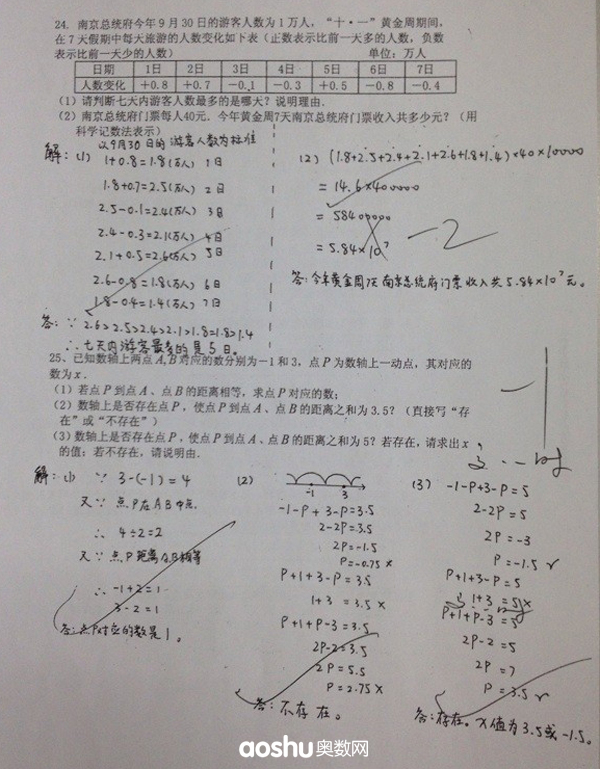 24. 南京总统府今年9月30日的游客人数为1万人，“十·一”黄金周期间，
在7天假期中每天旅游的人数变化如下表（正数表示比前一天多的人数，负数
表示比前一天少的人数） 单位：万人
日期 1日 2日 3日 4日 5日 6日 7日
人数变化 +0.8 +0.7 -0.1 -0.3 +0.5 -0.8 -0.4
（1）请判断七天内游客人数最多的是哪天？说明理由.
（2）南京总统府门票每人40元. 今年黄金周7天南京总统府门票收入共多少元？（用
科学记数法表示）
以9月30日的游客人数为标准
解：(1) 1+0.8=1.8(万人) 1日
1.8+0.7=2.5(万人) 2日
2.5-0.1=2.4(万人) 3日
2.4-0.3=2.1(万人) 4日
2.1+0.5=2.6(万人) 5日
2.6-0.8=1.8(万人) 6日
1.8-0.4=1.4(万人) 7日
答：∵ 2.6>2.5>2.4>2.1>1.8=1.8>1.4
∴七天内游客最多的是5日。
(2) (1.8+2.5+2.4+2.1+2.6+1.8+1.4)×40×10000
=14.6×400000
=58400000
=5.84×10⁷
-2
答：今年黄金周7天南京总统府门票收入共5.84×10⁷元。
25、已知数轴上两点A,B对应的数分别为-1和3，点P为数轴上一动点，其对应的
数为x.
（1）若点P到点A、点B的距离相等，求点P对应的数；
（2）数轴上是否存在点P，使点P到点A、点B的距离之和为3.5？（直接写“存
在”或“不存在”）
（3）数轴上是否存在点P，使点P到点A、点B的距离之和为5？若存在，请求出x
的值；若不存在，请说明由.
解：(1) ∵ 3-(-1)=4
又∵点P在AB中点.
∴ 4÷2=2
又∵点P距离AB相等
∴ -1+2=1
3-2=1
答：点P对应的数是1。
(2)
-1 3
-1-P+3-P=3.5
2-2P=3.5
2P=-1.5
P=-0.75 ×
P+1+3-P=3.5
1+3=3.5 ×
P+1+P-3=3.5
2P-2=3.5
2P=5.5
P=2.75 ×
答：不存在。
(3) -1-P+3-P=5
2-2P=5
2P=-3
P=-1.5 √
P+1+3-P=5
1+3=5 ×
P+1+P-3=5
2P-2=5
2P=7
P=3.5 √
答：存在。x值为3.5或-1.5。
aoshu奥数网